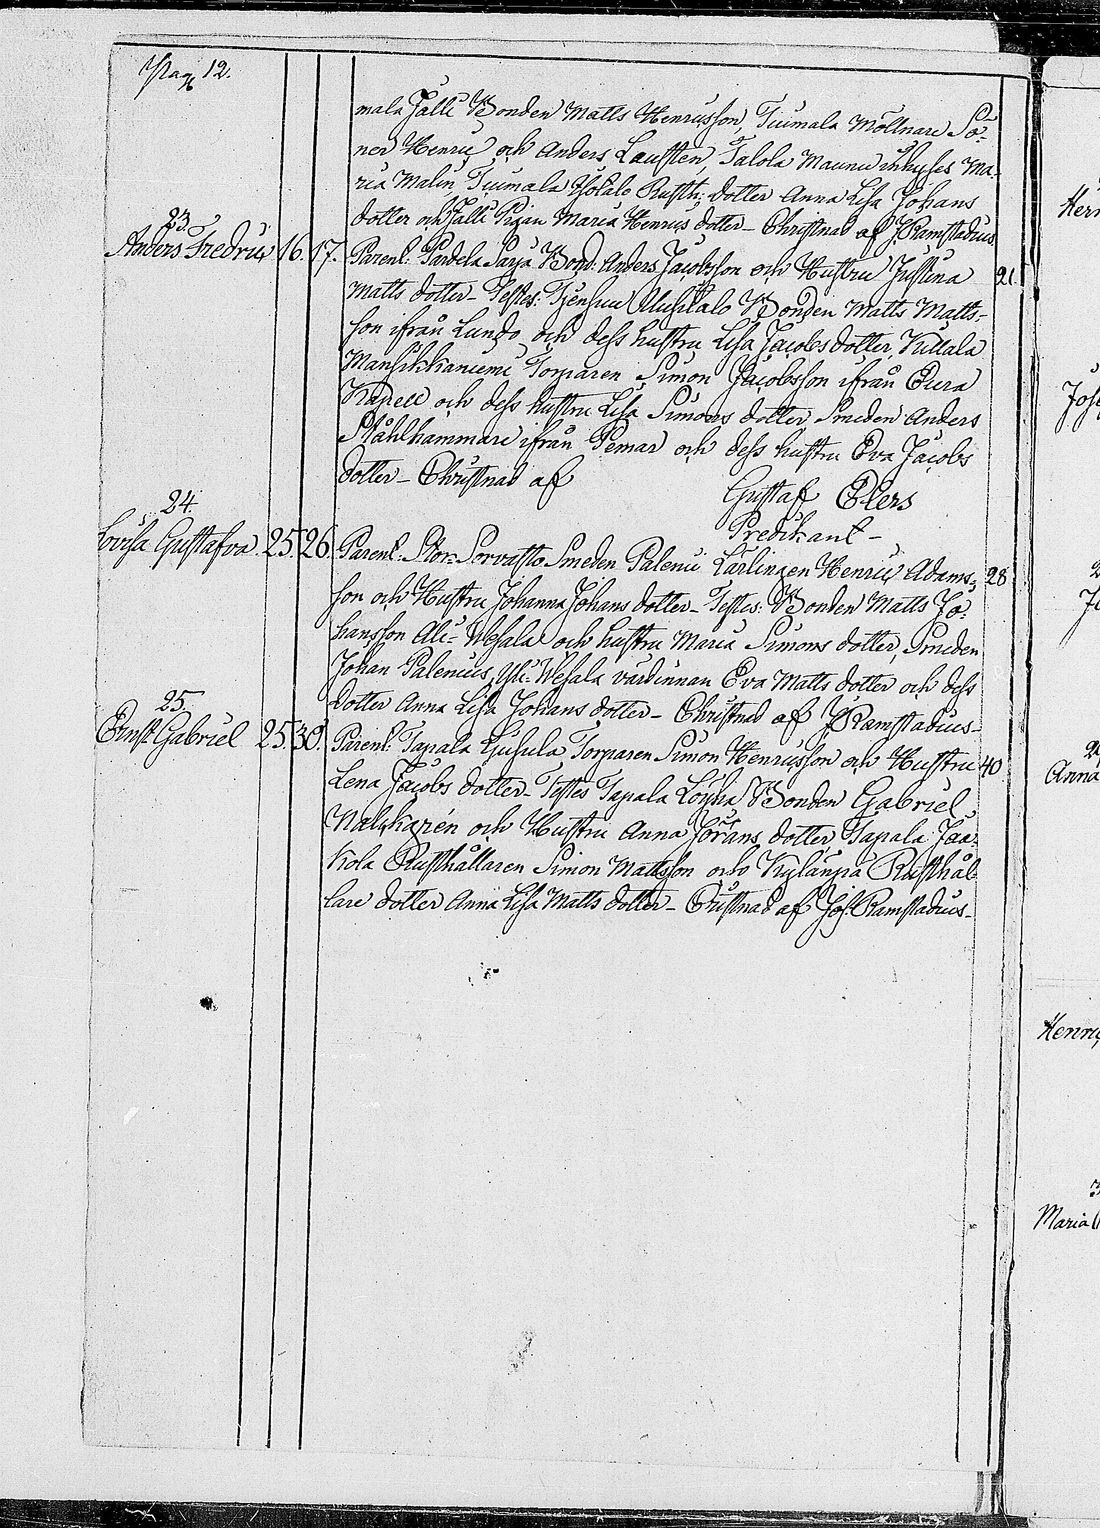 Pag 12.
mala Jalli Bonden Matts Henriksson, Tuimala Möllnare Sö-
ner Henric och Anders Lausten, Talola Maunu inhyses Ma-
ria Malin, Tuimala Rusth: dotter Anna Lisa Johans
dotter och Jalli Pigan Maria Henrics dotter - Christnad af J Ramstadius
23
Anders Fredric 16. 17. Parent: Pardela Sarja Bond: Anders Jacobsson och Hustru Justina 21.
Matts dotter - Testes: Bonden Matts Matts-
son ifrån Lundo och dess hustru Lisa Jacobs dotter,
Mansikkaniemi Torparen Simon Jacobsson ifrån Eura
Kapell och dess hustru Lisa Simons dotter, Smeden Anders
Ståhlhammare ifrån Pemar och dess hustru Eva Jacobs
dotter - Christnad af Gustaf Elers
Predikant -
24.
Lovisa Gustafva. 25. 26. Parent: Stor Sorvasto Smeden Paleni Lärlingen Henric Adams- 28
son och Hustru Johanna Johans dotter - Testes: Bonden Matts Jo-
hansson Ali-Wesala och hustru Maria Simons dotter, Smeden
Johan Palenius, Yli-Wesala värdinnan Eva Matts dotter och dess
dotter Anna Lisa Johans dotter - Christnad af J Ramstadius -
25.
Ernst Gabriel 25. 30. Parent: Tapala Torparen Simon Henriksson och Hustru 40
Lena Jacobs dotter - Testes Tapala Bonden Gabriel
och Hustru Anna Görans dotter, Tapala Jaa-
kola Rusthållaren Simon Mattsson och Kylänpä Rusthål-
lare dotter Anna Lisa Matts dotter - Cristnad af Joh: Ramstadius -
Maria